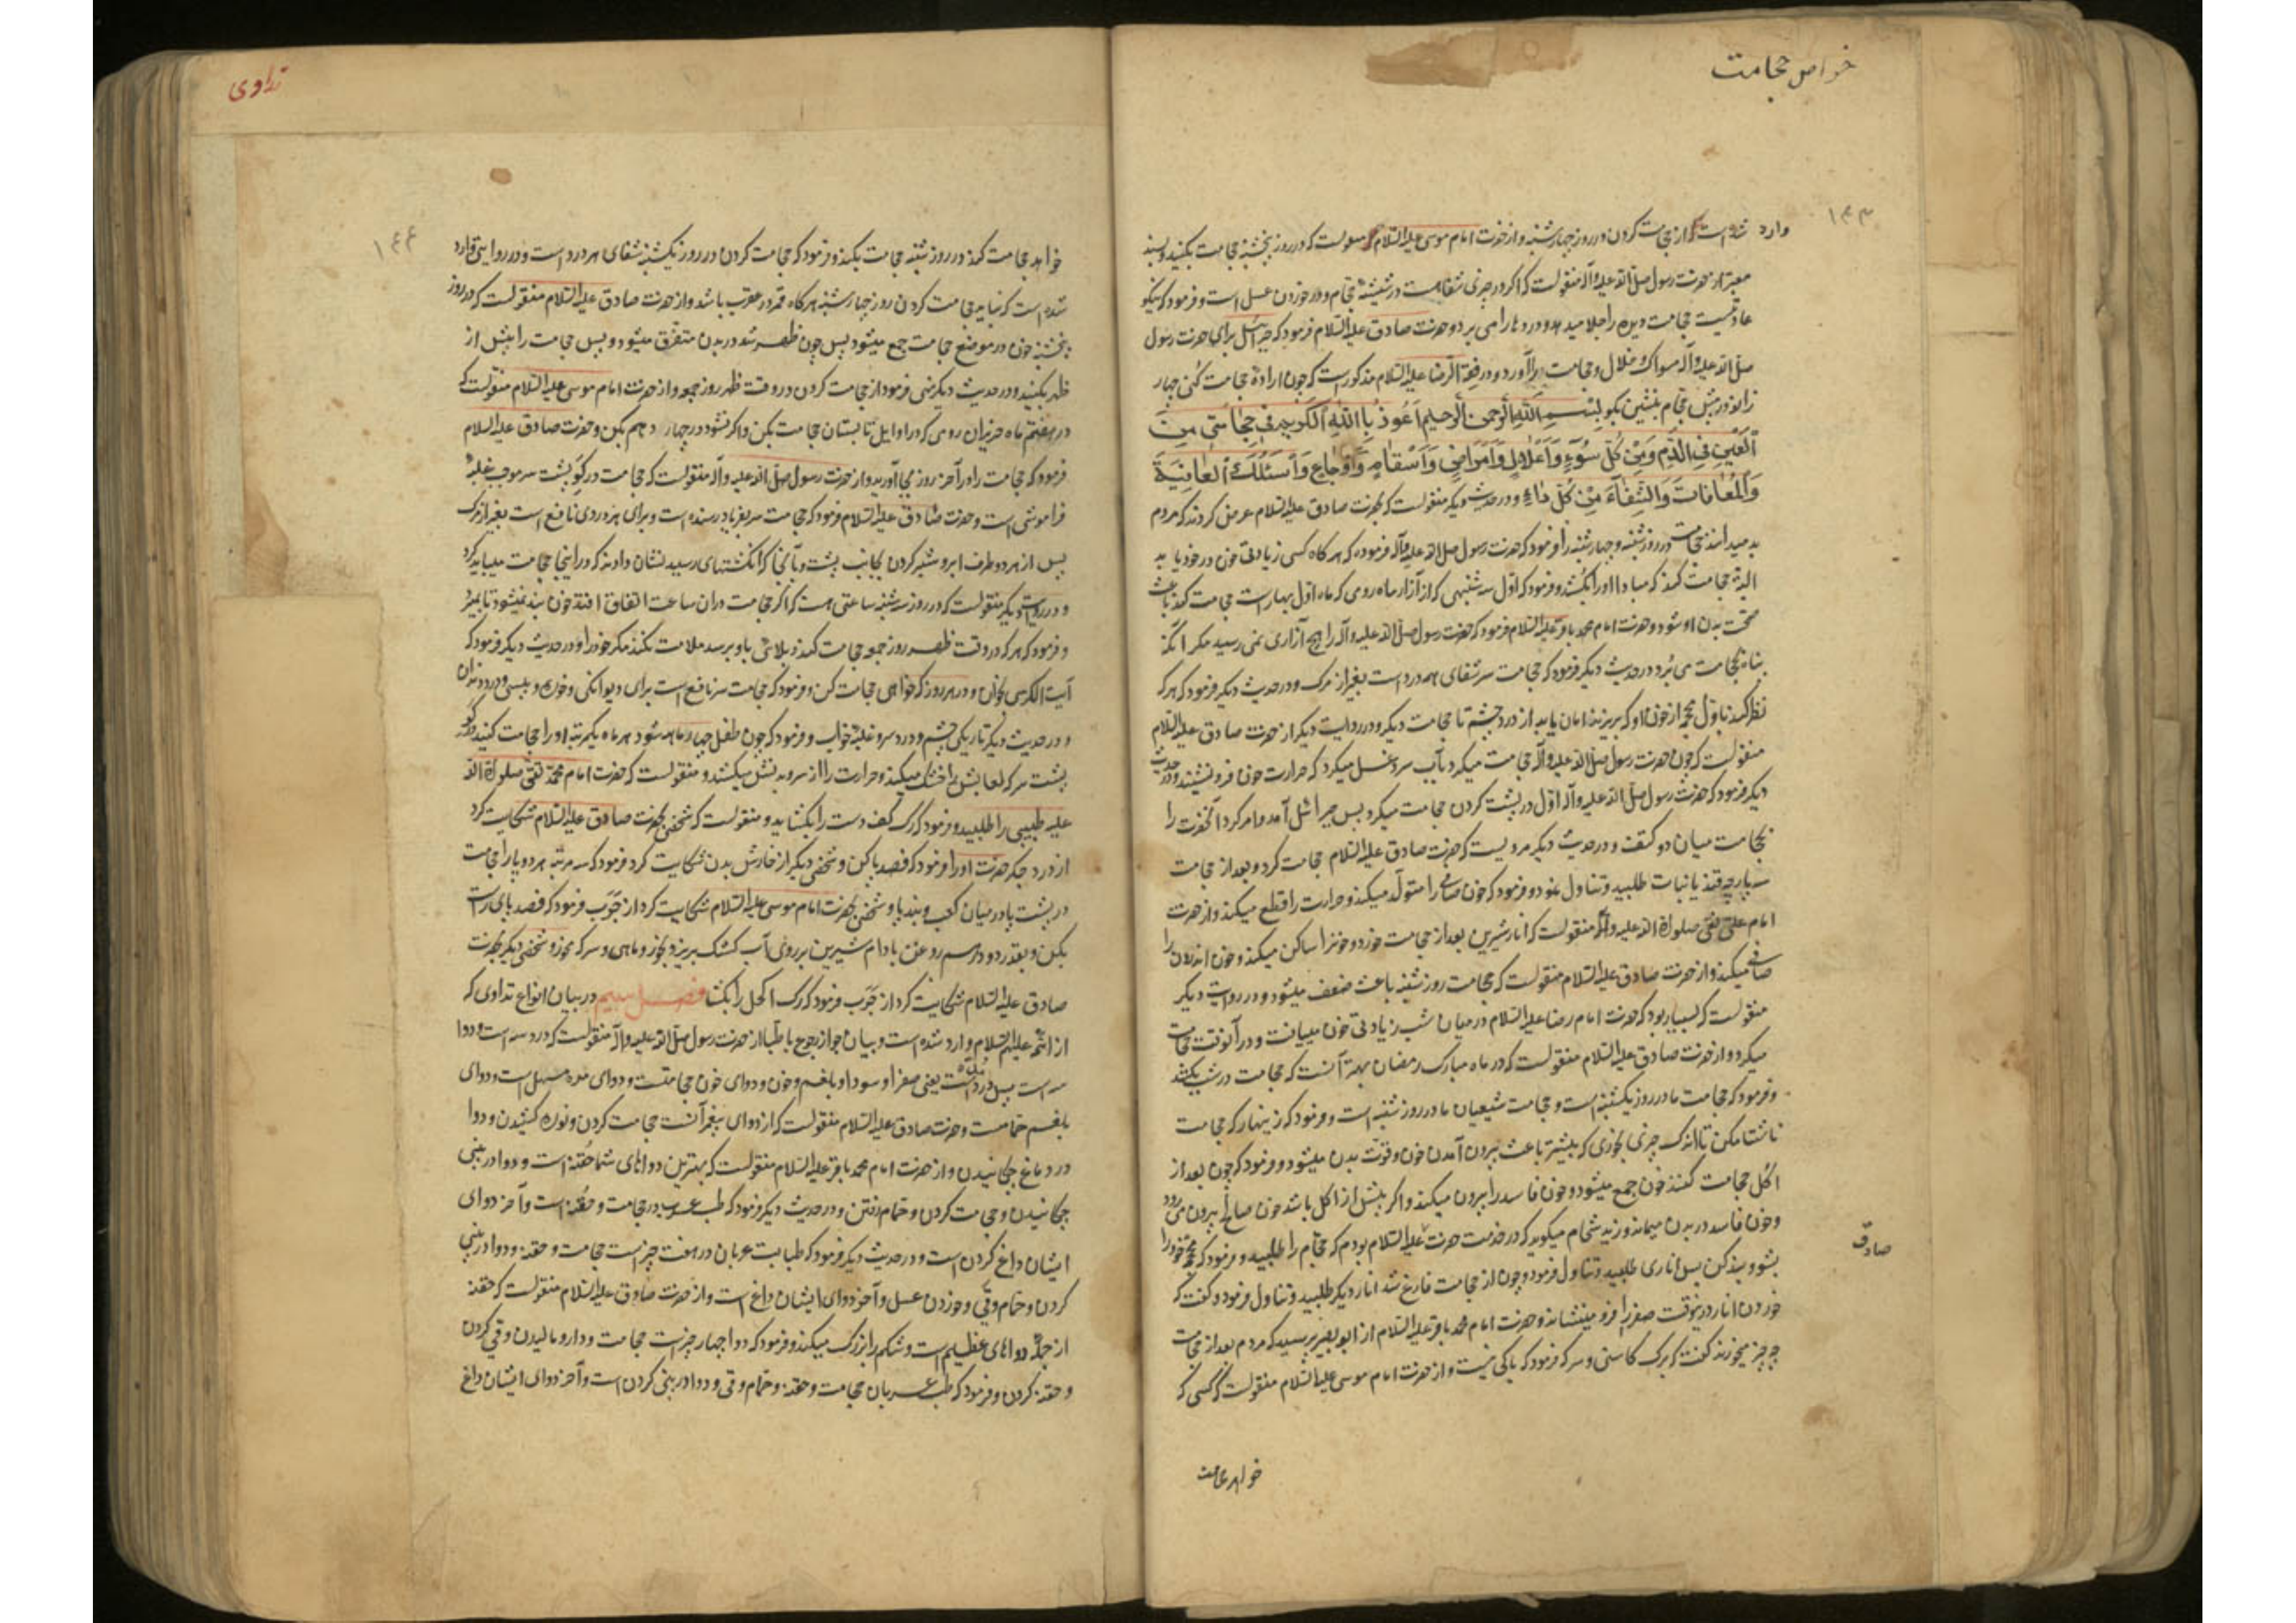 خواص حجامت
۱۴۳
وارد شده است از حجامت کردن در روز چهارشنبه و از حضرت امام موسی علیه السلام منقولست که در روز پنجشنبه حجامت بکنید و بسند
معتبر از حضرت رسول صلی الله علیه و آله منقولست که اگر در چیزی شفا هست در شیشهٔ حجام و در خوردن عسل است و فرمود که نیکو
عادتیست حجامت دیده را جلا میدهد و دردها را می برد و حضرت صادق علیه السلام فرمود که جبرائیل برای حضرت رسول
صلی الله علیه و آله مسواک و خلال و حجامت را آورد و در فقه الرضا علیه السلام مذکور است که چون ارادهٔ حجامت کنی چهار
زانو در پیش حجام بنشین بکو بِسْمِ اللهِ الرَّحمنِ الرَّحیمِ اَعُوذُ بِاللهِ الکَرِیمِ فی حِجامَتی مِنَ
اَلعَینِ فِی الدَّمِ وَمِنْ کُلِّ سُوءٍ وَاَعْلالٍ وَاَمْراضٍ وَاَسْقامٍ وَاَوْجاعٍ وَاَسْئَلُکَ العافِیَةَ
وَالْمُعافاتَ وَالشِّفاءَ مِنْ کُلِّ داءٍ و در حدیث دیگر منقولست که بحضرت صادق علیه السلام عرض کردند که مردم
بد میدانند حجامت در روز شنبه و چهارشنبه را فرمود که حضرت رسول صلی الله علیه و آله فرموده که هرگاه کسی زیادتی خون در خود یابد
البته حجامت کند که مبادا او را بکشد و فرمود که اول سه شنبهی که از آزار ماه رومی که ماه اول بهار است حجامت کند باعث
صحت بدن او شود و حضرت امام محمد باقر علیه السلام فرمود که حضرت رسول صلی الله علیه و آله را هیچ آزاری نمی رسید مگر آنکه
پناه بحجامت می برد و در حدیث دیگر فرمود که حجامت سر شفای همه درد است بغیر از مرگ و در حدیث دیگر فرمود که هر که
نظر کند باول محجمه از خون او که بریزند امان یابد از درد چشم تا حجامت دیگر و در روایت دیگر از حضرت صادق علیه السلام
منقولست که چون حضرت رسول صلی الله علیه و آله حجامت میکرد بآب سرد غسل میکرد که حرارت خون فرو نشیند و در حدیث
دیگر فرمود که حضرت رسول صلی الله علیه و آله اول در پشت گردن حجامت میکرد پس جبرائیل آمد و امر کرد آنحضرت را
بحجامت میان دو کتف و در حدیث دیگر مرویست که حضرت صادق علیه السلام حجامت کرد و بعد از حجامت
سه پارچه قند یا نبات طلبید و تناول نمود و فرمود که خون صافی را متولد میکند و حرارت را قطع میکند و از حضرت
امام علی نقی صلواة الله علیه و آله منقولست که انار شیرین بعد از حجامت خورد و خونرا ساکن میکند و خون اندرون را
صافی میکند و از حضرت صادق علیه السلام منقولست که حجامت روز شنبه باعث ضعف میشود و در روایت دیگر
منقولست که بسیار بود که حضرت امام رضا علیه السلام در میان شب زیادتی خون مییافت و در آنوقت حجامت
میکرد و از حضرت صادق علیه السلام منقولست که در ماه مبارک رمضان بهتر آنست که حجامت در شب بکند
و فرمود که حجامت ما در روز یکشنبه است و حجامت شیعیان ما در روز شنبه است و فرمود که زینهار که حجامت
ناشتا مکن تا اندک چیزی بخوری که بیشتر باعث بیرون آمدن خون و قوت بدن میشود و فرمود که چون بعد از
اکل حجامت کنند خون جمع میشود و خون فاسد را بیرون میکند و اگر پیش از اکل باشد خون صالح بیرون می رود
و خون فاسد در بدن میماند و زید شحام میگوید که در خدمت حضرت علیه السلام بودم که حجام را طلبید و فرمود که محجمه خود را
صادق
بشو و بند کن پس اناری طلبید و تناول فرمود و چون از حجامت فارغ شد انار دیگر طلبید و تناول فرمود و گفت که
خوردن انار درینوقت صفرا را فرو مینشاند و حضرت امام محمد باقر علیه السلام از ابو بصیر پرسید که مردم بعد از حجامت
چه چیز میخورند گفت که برگ کاسنی و سرکه فرمود که باکی نیست و از حضرت امام موسی علیه السلام منقولست که کسی که
خواهد حجامت
تداوی
۱۴۴
خواهد حجامت کند در روز شنبه حجامت بکند و فرمود که حجامت کردن در روز یکشنبه شفای هر درد است و در روایتی وارد
شده است که نباید حجامت کردن روز چهارشنبه هرگاه قمر در عقرب باشد و از حضرت صادق علیه السلام منقولست که در روز
پنجشنبه خون در موضع حجامت جمع میشود پس چون ظهر شد در بدن متفرق میشود و پس حجامت را پیش از
ظهر بکنید و در حدیث دیگر نهی فرمود از حجامت کردن در وقت ظهر روز جمعه و از حضرت امام موسی علیه السلام منقولست که
در هفتم ماه حزیران رومی که در اوایل تابستان حجامت بکن و اگر نشود در چهاردهم بکن و حضرت صادق علیه السلام
فرمود که حجامت را در آخر روز بجا آورید و از حضرت رسول صلی الله علیه و آله منقولست که حجامت در گَوِ پشت سر موجب غلبهٔ
فراموشی است و حضرت صادق علیه السلام فرمود که حجامت سر بفریاد رسنده است و برای هر دردی نافع است بغیر از مرگ
پس از هر دو طرف ابرو شبر کردن بجانب پشت و بآنجا که انگشتهای رسید نشان دادند که در اینجا حجامت میباید کرد
و در روایت دیگر منقولست که در روز سه شنبه ساعتی هست که اگر حجامت در ان ساعت اتفاق افتد خون بند نمیشود تا بمیرد
و فرمود که هر که در وقت ظهر روز جمعه حجامت کند و بلائی باو برسد ملامت نکند مگر خود را و در حدیث دیگر فرمود که
آیت الکرسی بخوان و در هر روز که خواهی حجامت کن و فرمود که حجامت سر نافع است برای دیوانگی و خوره و پیسی و درد دندان
و در حدیث دیگر تاریکی چشم و درد سر و غلبهٔ خواب و فرمود که چون طفل چهار ماهه شود هر ماه یکمرتبه او را حجامت کنید در گَوِ
پشت سر که لعابش را خشک میکند و حرارت را از سر و بدنش میکشد و منقولست که حضرت امام محمد تقی صلوات الله
علیه طبیبی را طلبید و فرمود که رگ کف دست را بگشاید و منقولست که شخصی بحضرت صادق علیه السلام شکایت کرد
از درد جگر حضرت او را فرمود که فصد پا بکن و شخصی دیگر از خارش بدن شکایت کرد فرمود که سه مرتبه هر دو پا را حجامت
در پشت پا در میان کعب و بند پا و شخصی بحضرت امام موسی علیه السلام شکایت کرد از جَرَب فرمود که فصد پای راست
بکن و بقدر دو درهم روغن بادام شیرین بر روی آب کشک بریز و بخور و ماهی و سرکه مخور و شخصی دیگر بحضرت
صادق علیه السلام شکایت کرد از جَرَب فرمود که رگ اکحل را بگشا فصل سیم در بیان انواع تداوی که
از ائمه علیهم السلام وارد شده است و بیان جواز رجوع باطبا از حضرت رسول صلی الله علیه و آله منقولست که درد سه است و دوا
سه است پس درد مرّه است یعنی صفرا و سودا و بلغم و خون و دوای خون حجامتست و دوای مره مسهل است و دوای
بلغم حمامست و حضرت صادق علیه السلام منقولست که از دوای پیغمبر آنست حجامت کردن و نوره کشیدن و دوا
در دماغ چکانیدن و از حضرت امام محمد باقر علیه السلام منقولست که بهترین دواهای شما حقنه است و دوا در بینی
چکانیدن و حجامت کردن و حمام رفتن و در حدیث دیگر فرمود که طب عرب در حجامت و حقنه است و آخر دوای
ایشان داغ کردن است و در حدیث دیگر فرمود که طبابت عربان در هفت چیز است حجامت و حقنه و دوا در بینی
کردن و حمام و قی و خوردن عسل و آخر دوای ایشان داغ است و از حضرت صادق علیه السلام منقولست که حقنه
از جملهٔ دواهای عظیم است و شکم را بزرگ میکند و فرمود که دوا چهار چیزست حجامت و دارو مالیدن و قی کردن
و حقنه کردن و فرمود که طب عربان حجامت و حقنه و حمام و قی و دوا در بینی کردن است و آخر دوای ایشان داغ